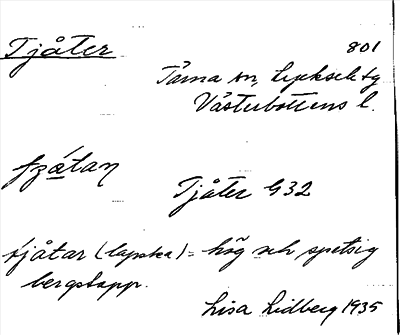 Tjåter 801
Tärna sn, Lycksele tg
Västerbottens l.
Tjåter G32
tjåtar (lapska) = hög och spetsig
bergstopp.
Lisa Lidberg 1935